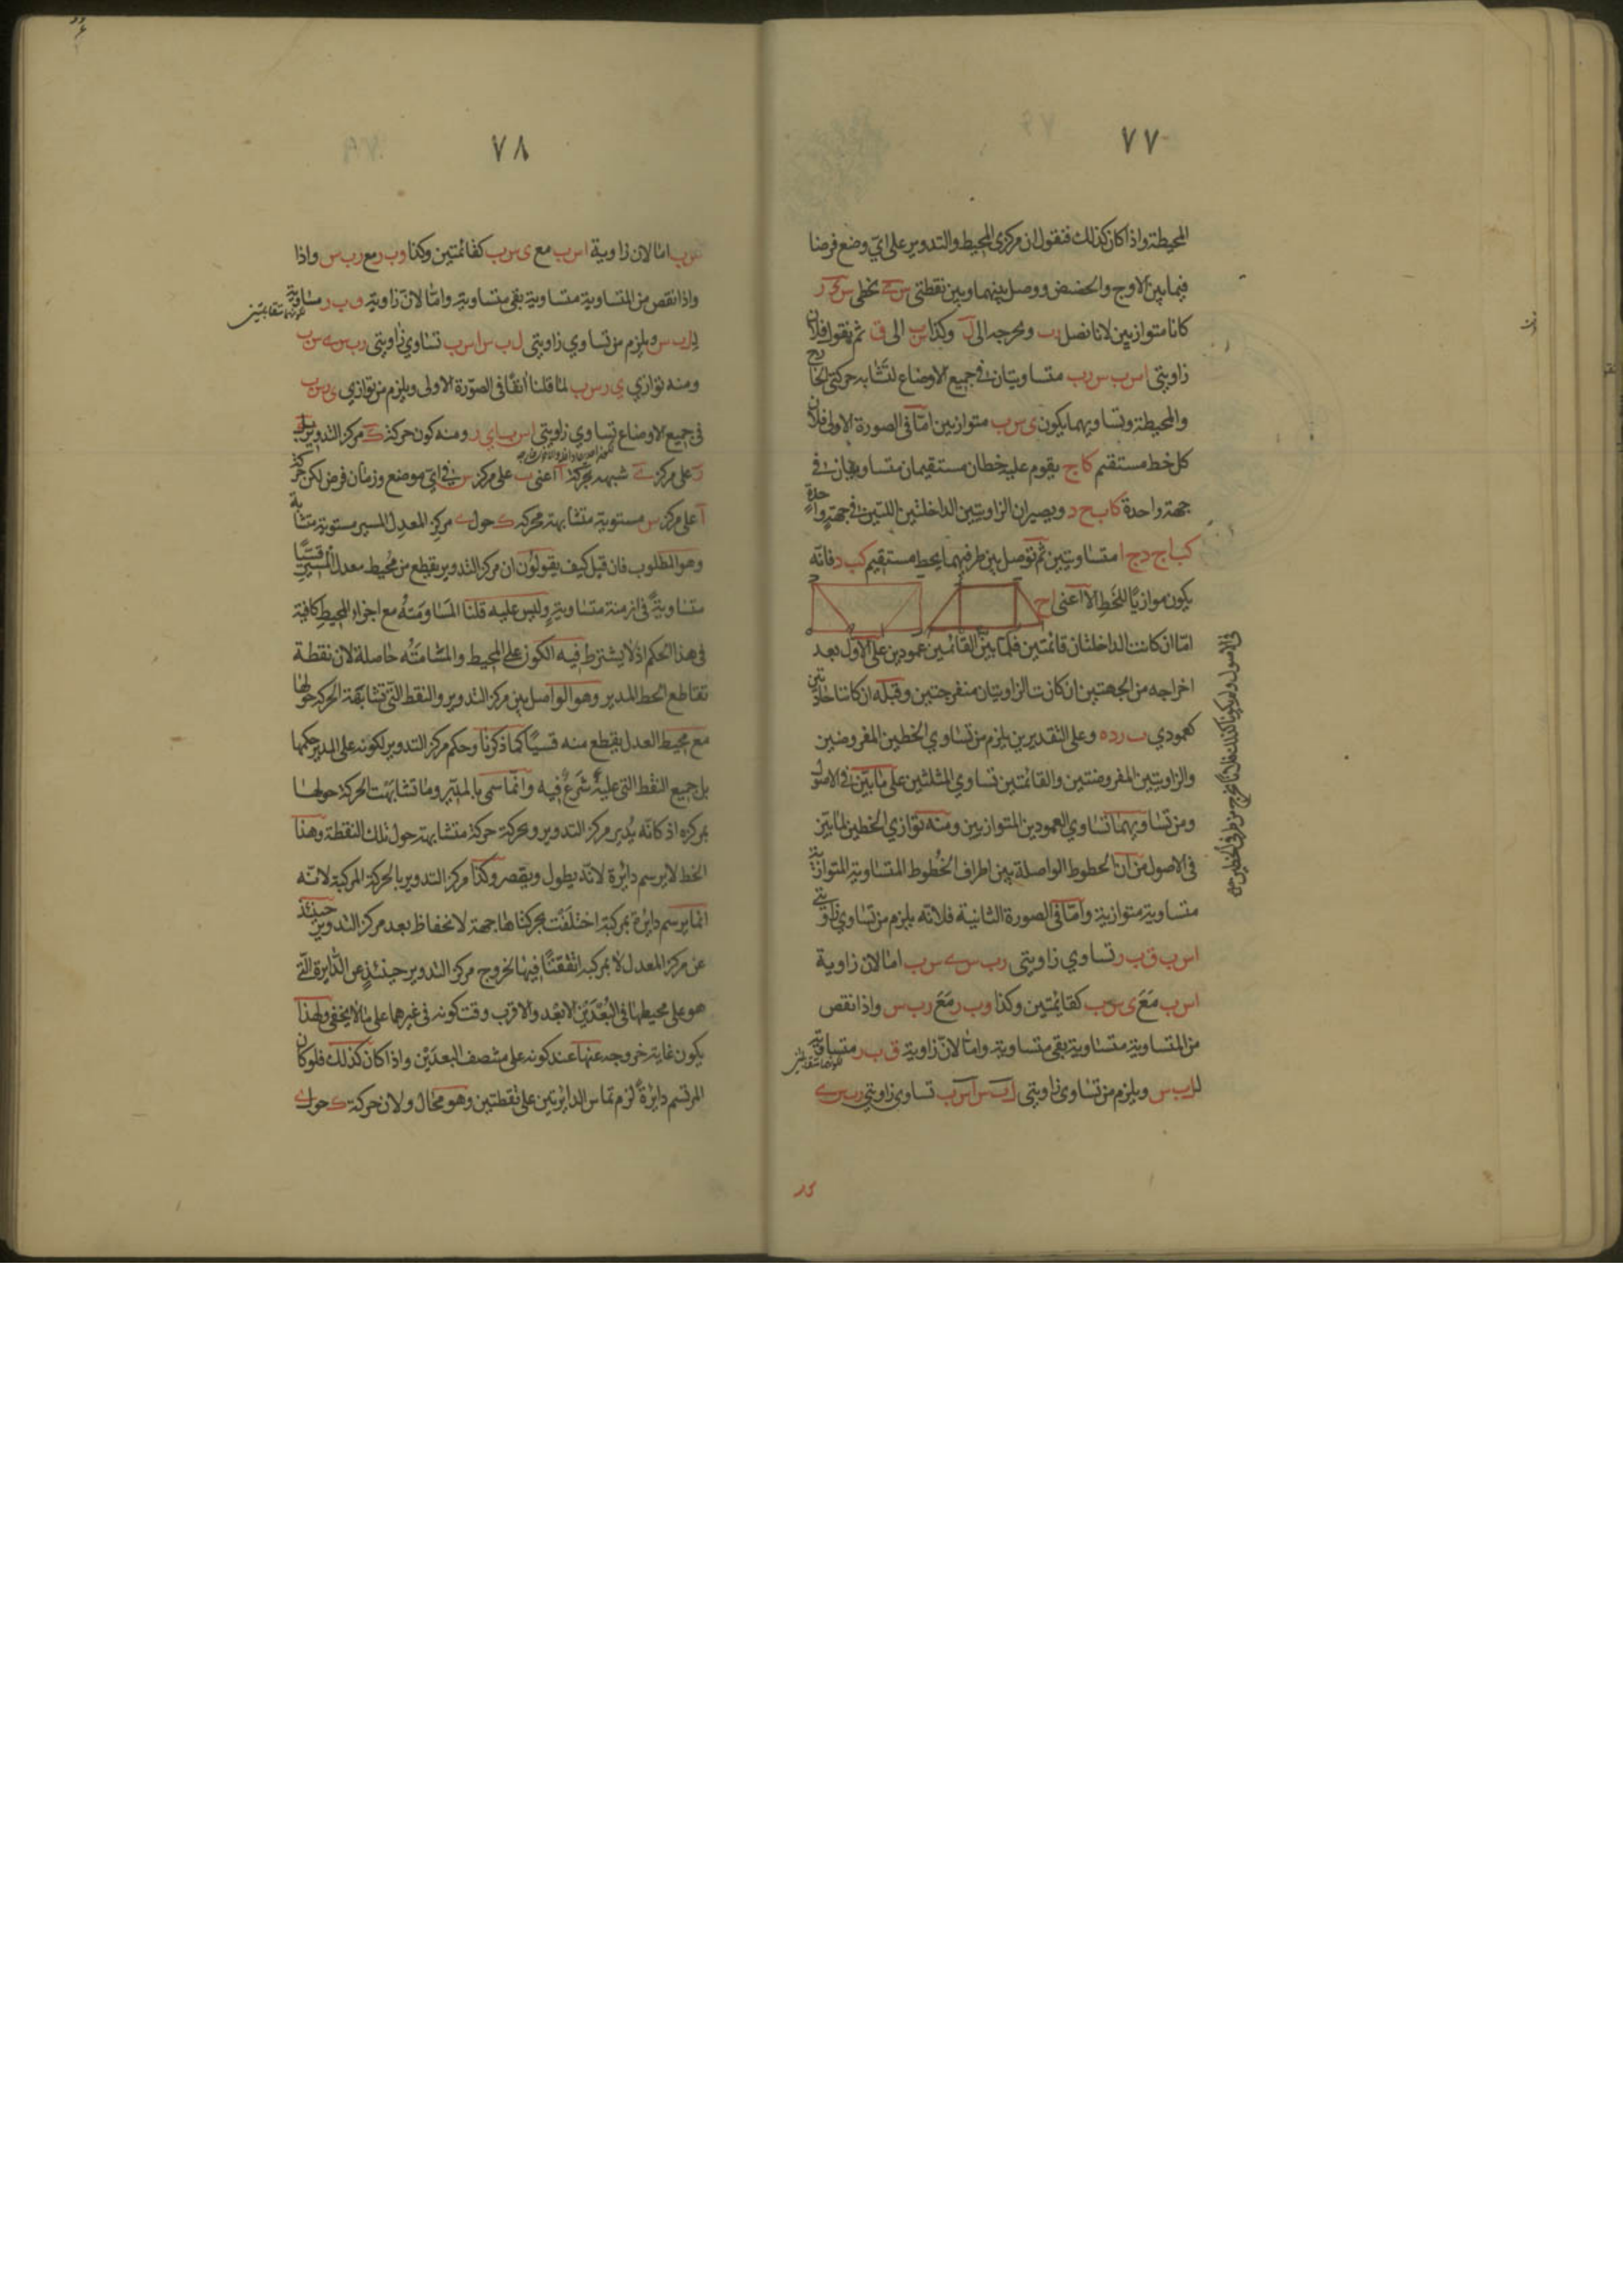 ٧٧
المحيطة واذا كان كذلك فنقول ان مركزى المحيط والتدوير على اىّ وضع فرضا
فيما بين الاوج والحضيض ووصل بينهما وبين نقطتى بخطى
كانا متوازيين لانا نصل ونخرجه الى وكذا الى ثم نقول فلان
زاويتى اس ب س رب متساويتان فى جميع الاوضاع لتشابه حركتى
والمحيطة وتساويهما يكون ى س ب متوازيين امّا فى الصورة الاولى فلان
كل خط مستقيم كاج يقوم عليه خطان مستقيمان متساويان فى
جهة واحدة كاب ج د ويصيران الزاويتين الداخلتين اللتين فى جهة واحدة
كباج دج ا متساويتين ثم نوصل بين طرفيهما بخط مستقيم كب د فانّه
يكون موازيًا للخط الا اعنى اج
امّا ان كانت الداخلتان قائمتين فلما بيّن القائمين عمودين على الاول بعد
اخراجه من الجهتين ان كانت الزاويتان منفرجتين وقبله ان كانتا حادّتين
كعمودي ب ر ده وعلى التقديرين يلزم من تساوي الخطين المفروضين
والزاويتين المفروضتين والقائمتين تساوي المثلثين على ما بيّن فى الاصول
ومن تساويهما تساوي العمودين المتوازيين ومنه توازي الخطين لما بيّن
فى الاصول من ان الخطوط الواصلة بين اطراف الخطوط المتساوية المتوازية
متساوية متوازية وامّا فى الصورة الثانية فلانّه يلزم من تساوي زاويتى
اس ب ق ب ر تساوي زاويتى رب س ى س ب امّا لان زاوية
اس ب مَعَ ى س ب كقائمتين وكذا وب ر مَعَ رب س واذا نقص
من المتساوية متساوية بقى متساوية وامّا لانّ زاوية ق ب ر متساوية
لرب س ويلزم من تساوى زاويتى ل ب س اس ب تساوى زاويتى رب س ى
٧٨
س ب امّا لان زاوية اس ب مع ى س ب كقائمتين وكذا وب ر مع رب س واذا
واذا نقص من المتساوية متساوية بقى متساوية وامّا لانّ زاوية ق ب ر متساوية
لرب س ويلزم من تساوي زاويتى ل ب س اس ب تساوي زاويتى رب س ى س ب
ومنه توازي ى ر س ب لما قلنا انفًا فى الصورة الاولى ويلزم من توازي ى ر س ب
فى جميع الاوضاع تساوي زاويتى اس ب اى ر ومنه كون حركة مركز التدوير
ر على مركز ى شبيهه بحركة ا اعنى ب على مركز س فى اىّ موضع وزمان فرض لكن حركة
ا على مركز س مستوية متشابهة فحركة ك حول ى مركز المعدل المسير مستوية متشابهة
وهو المطلوب فان قيل كيف يقولون ان مركز التدوير يقطع من محيط معدل المسير قسيًّا
متساويةً فى ازمنة متساوية وليس عليه قلنا المساومته مع اجزاء المحيط كافية
فى هذا الحكم اذ لا يشترط فيه الكون على المحيط والمسامته حاصلة لان نقطة
تقاطع الخط المدير وهو الواصل بين مركز التدوير والنقط التى تشابهت الحركة حولها
مع محيط المعدل يقطع منه قسيًا كما ذكرنا وحكم مركز التدوير لكونه على المدير حكمها
بل جميع النقط التى عليه شرع فيه وانّما سمى بالمدير وما تشابهت الحركة حولها
بمركزه اذ كانّه يُدير مركز التدوير ويحركه حركة متشابهة حول تلك النقطة وهذا
الخط لا يرسم دائرة لانّه يطول ويقصر وكذا مركز التدوير بالحركة المركبة لانّه
انّما يرسم دائرة بمركبة اختلفت بحركتاها جهة لا نحفاظ بعد مركز التدوير حينئذ
عن مركز المعدل لا بمركبة اتفقتا فيها لخروج مركز التدوير حينئذٍ عن الدايرة التى
هو على محيطها فى البُعْدَيْن الابعد والاقرب وقت كونه فى غيرهما على ما لا يخفى ولهذا
يكون غاية خروجه عنها عند كونه على منتصف البعدَيْن واذا كان كذلك فلو كان
المرتسم دايرةً لزم تماس الدائرتين على نقطتين وهو محال ولان حركة ك حول ى